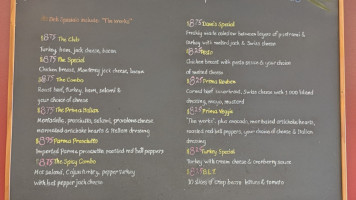 Deli Specials Include "The Works"
$8.75 The Club
Turkey, ham, jack cheese, bacon
$8.75 The Special
Chicken breast, Monterey jack cheese, bacon
$8.75 The Combo
Roast beef, turkey, ham, salami &
your choice of cheese
$8.75 The Prima Italian
Mortadella, prosciutto, salami, provolone cheese
marinated artichoke hearts & Italian dressing
$8.75 Parma Prosciutto
Imported Parma prosciutto roasted red bell peppers
$8.75 The Spicy Combo
Hot salami, Cajun turkey, pepper turkey
with hot pepper jack cheese
$8.75 Dave's Special
Freshly made coleslaw between layers of pastrami &
turkey with melted jack & Swiss cheese
Pesto
Chicken breast with pesto sauce & your choice
of melted cheese
Prima Reuben
Corned beef, sauerkraut, Swiss cheese with 1000 island
dressing, mayo, mustard
Prima Veggie
"The works", plus avocado, marinated artichoke hearts,
roasted red bell peppers, your choice of cheese & Italian
dressing
Turkey Special
Turkey with cream cheese & cranberry sauce
B.L.T
10 slices of crisp bacon, lettuce & tomato